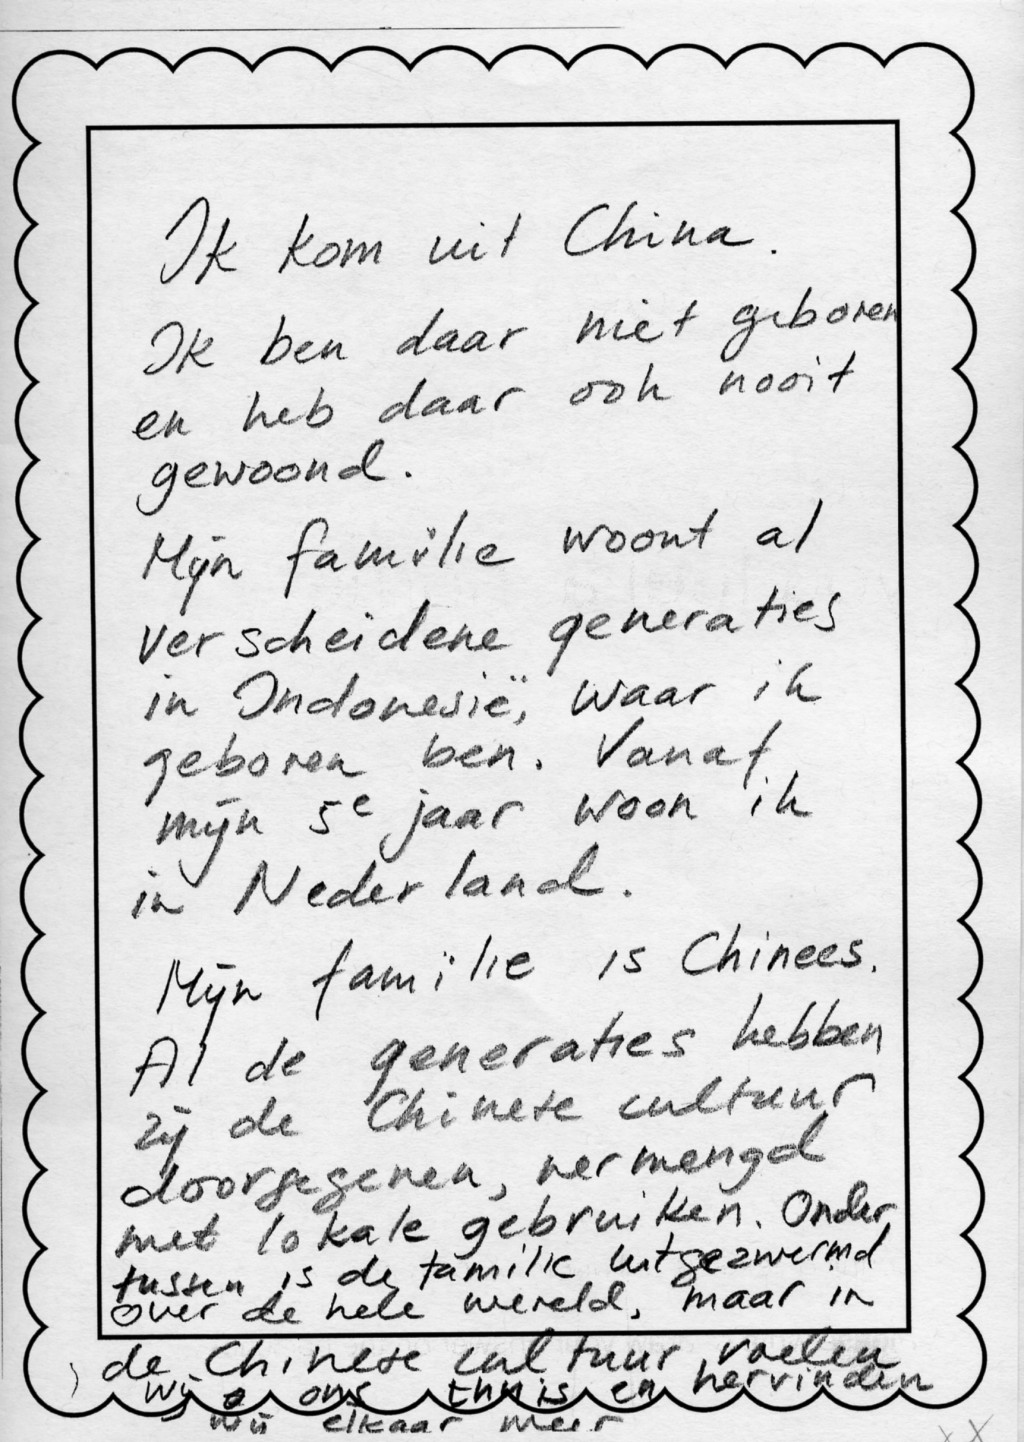 Ik kom uit China.
Ik ben daar niet geboren
en heb daar ook nooit
gewoond.
Mijn familie woont al
verscheidene generaties
in Indonesië, waar ik
geboren ben. Vanaf
mijn 5e jaar woon ik
in Nederland.
Mijn familie is Chinees.
Al de generaties hebben
zij de Chinese cultuur
doorgegeven, vermengd
met lokale gebruiken. Onder
tussen is de familie uitgezwermd
over de hele wereld, maar in
de Chinese cultuur voelen
wij ons thuis en hervinden
wij elkaar weer